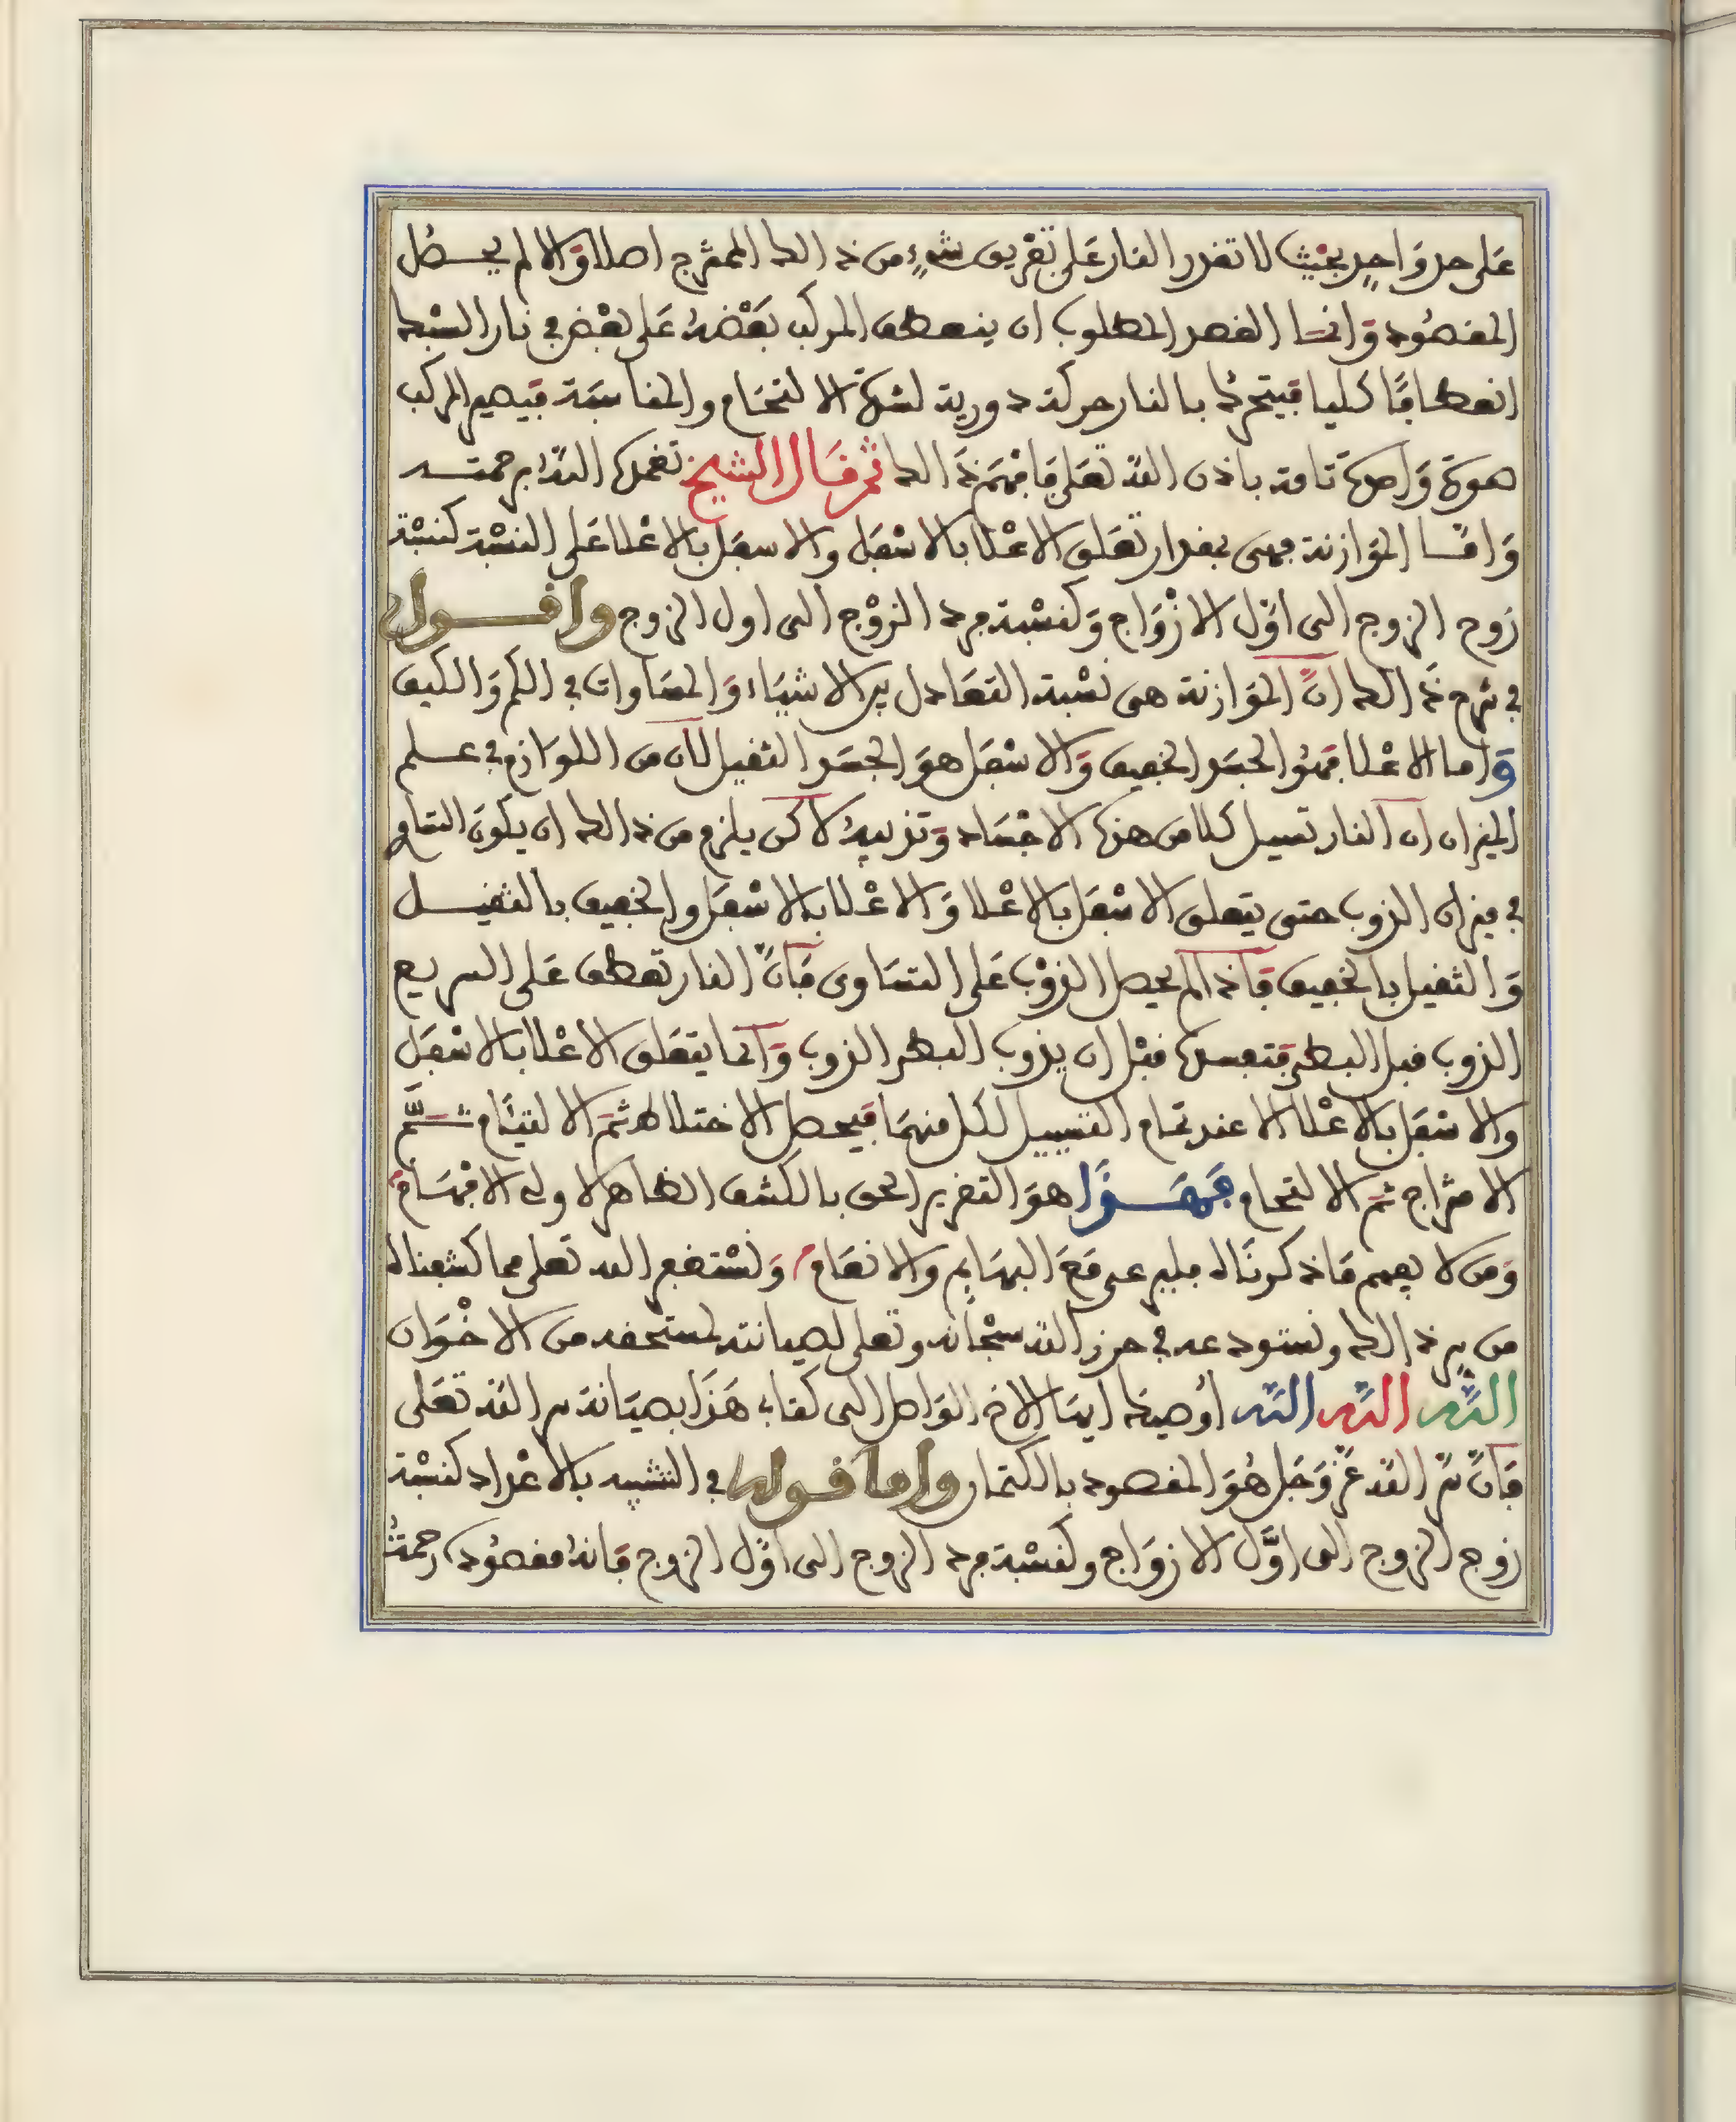 على حد واحد بحيث لا تقدر النار على تفريق شيء من ذالك الممتزج اصلا والا لم يحصل
المقصود وانما القصد المطلوب ان ينعطف المركب بعضه على بعض في نار السبك
انعطافا كليا فيتحرك بالنار حركة دورية لشدة الالتحام والمناسبة فيصير المركب
هوية واحدة تامة باذن الله تعلى فافهم ذالك ثم قال الشيخ تغمده الله برحمته
واما الموازنة فهى بمقدار تعلق الاعلا بالاسفل والاسفل بالاعلا على النسبة كنسبة
زوج الزوج الى اول الازواج وكنسبة فرد الزوج الى اول الزوج واقول
في شرح ذالك ان الموازنة هى نسبة التعادل بين الاشياء والمساوات في الكم والكيف
واما الاعلا فهو الجسد الخفيف والاسفل هو الجسد الثقيل لان من اللوازم في علم
الميزان ان النار تسيل كلا من هذه الاجساد وتذيبه لاكن يلزم من ذالك ان يكون التمام
في ميزان الذوب حتى يتعلق الاسفل بالاعلا والاعلا بالاسفل والخفيف بالثقيل
والثقيل بالخفيف فاذا لم يحصل الذوب على التساوى فان النار تعطف على السريع
الذوب قبل البطى فتفسده قبل ان يذوب البطى الذوب وانما يتعلق الاعلا بالاسفل
والاسفل بالاعلا الا عند تمام التسييل لكل منهما فيحصل الاختلاط ثم الالتيام ثم
الامتزاج ثم الالتحام فهذا هو التقرير الحق بالكشف الظاهر لاولى الافهام
ومن لا يفهم ما ذكرناه فليرعى مع البهايم والانعام ونستغفر الله تعلى مما كشفناه
من سر ذالك ونستودعه في حرز الله سبحانه وتعلى لصيانته لمستحقه من الاخوان
الله الله الله أوصيك ايها الاخ الواصل الى كتابي هذا بصيانة سر الله تعلى
فان سر الله عز وجل هو المقصود بالكتمان واما قوله في التشبيه بالاعداد كنسبة
زوج الزوج الى اول الازواج وكنسبة فرد الزوج الى اول الزوج فانه مقصوده رحمة